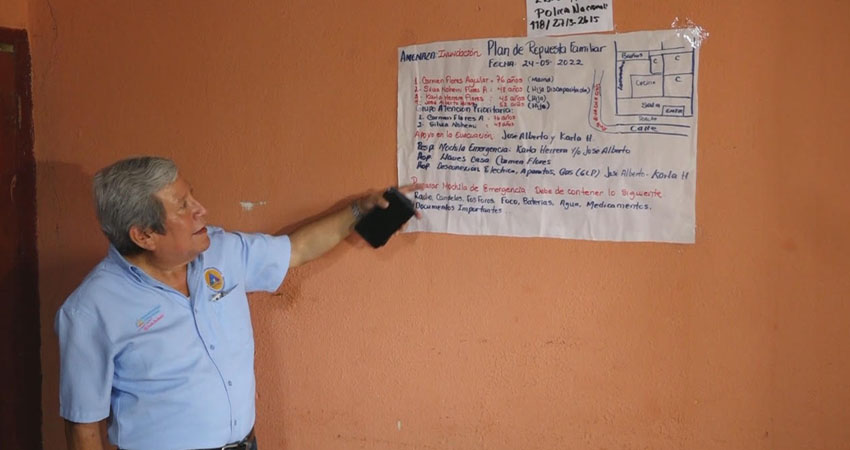 Policia Nacional
118/27/3-2615
AMENAZA: Inundación Plan de Repuesta Familiar
FECHA: 24-05-2022
1. Carmen Flores Aguilar = 76 años (Mamá)
2. Silvia Nohemi Flores A : 48 años (Hija Discapacitada)
3. Karla Herrera Flores : 43 años (Hija)
años (Hijo)
Grupo Atención Prioritaria:
1. Carmen Flores A : 76 años
2. Silvia Nohemi : 48 años
Apoyo en la Evacuación: Jose Alberto y Karla H.
Resp Mochila Emergencia: Karla Herrera Y/o Jose Alberto
Resp Llaves Casa Carmen Flores
Resp Desconexion Electrica, Aparatos, Gas (GLP) Jose Alberto - Karla H
Preparar Mochila de Emergencia: Debe de contener lo Siguiente
Radio, Candelas, Fosforos, Foco, Baterias, Agua, Medicamentos.
Documentos Importantes
C
C
C
Cocina
Sala
Calle